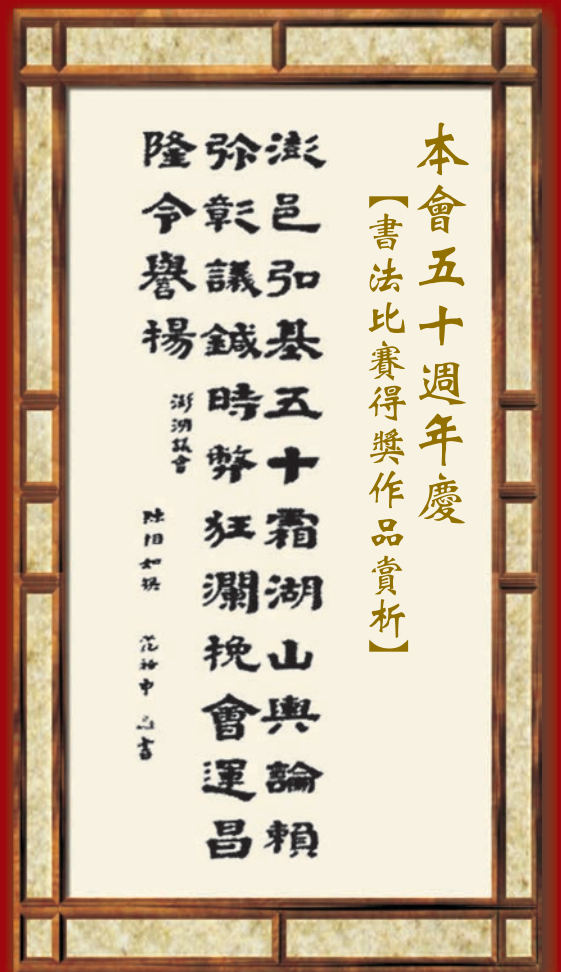 本會五十週年慶
【書法比賽得獎作品賞析】
澎邑弘基五十霜湖山輿論賴
弥彰議鍼時弊狂瀾挽會運昌
隆令譽揚
澎湖議會